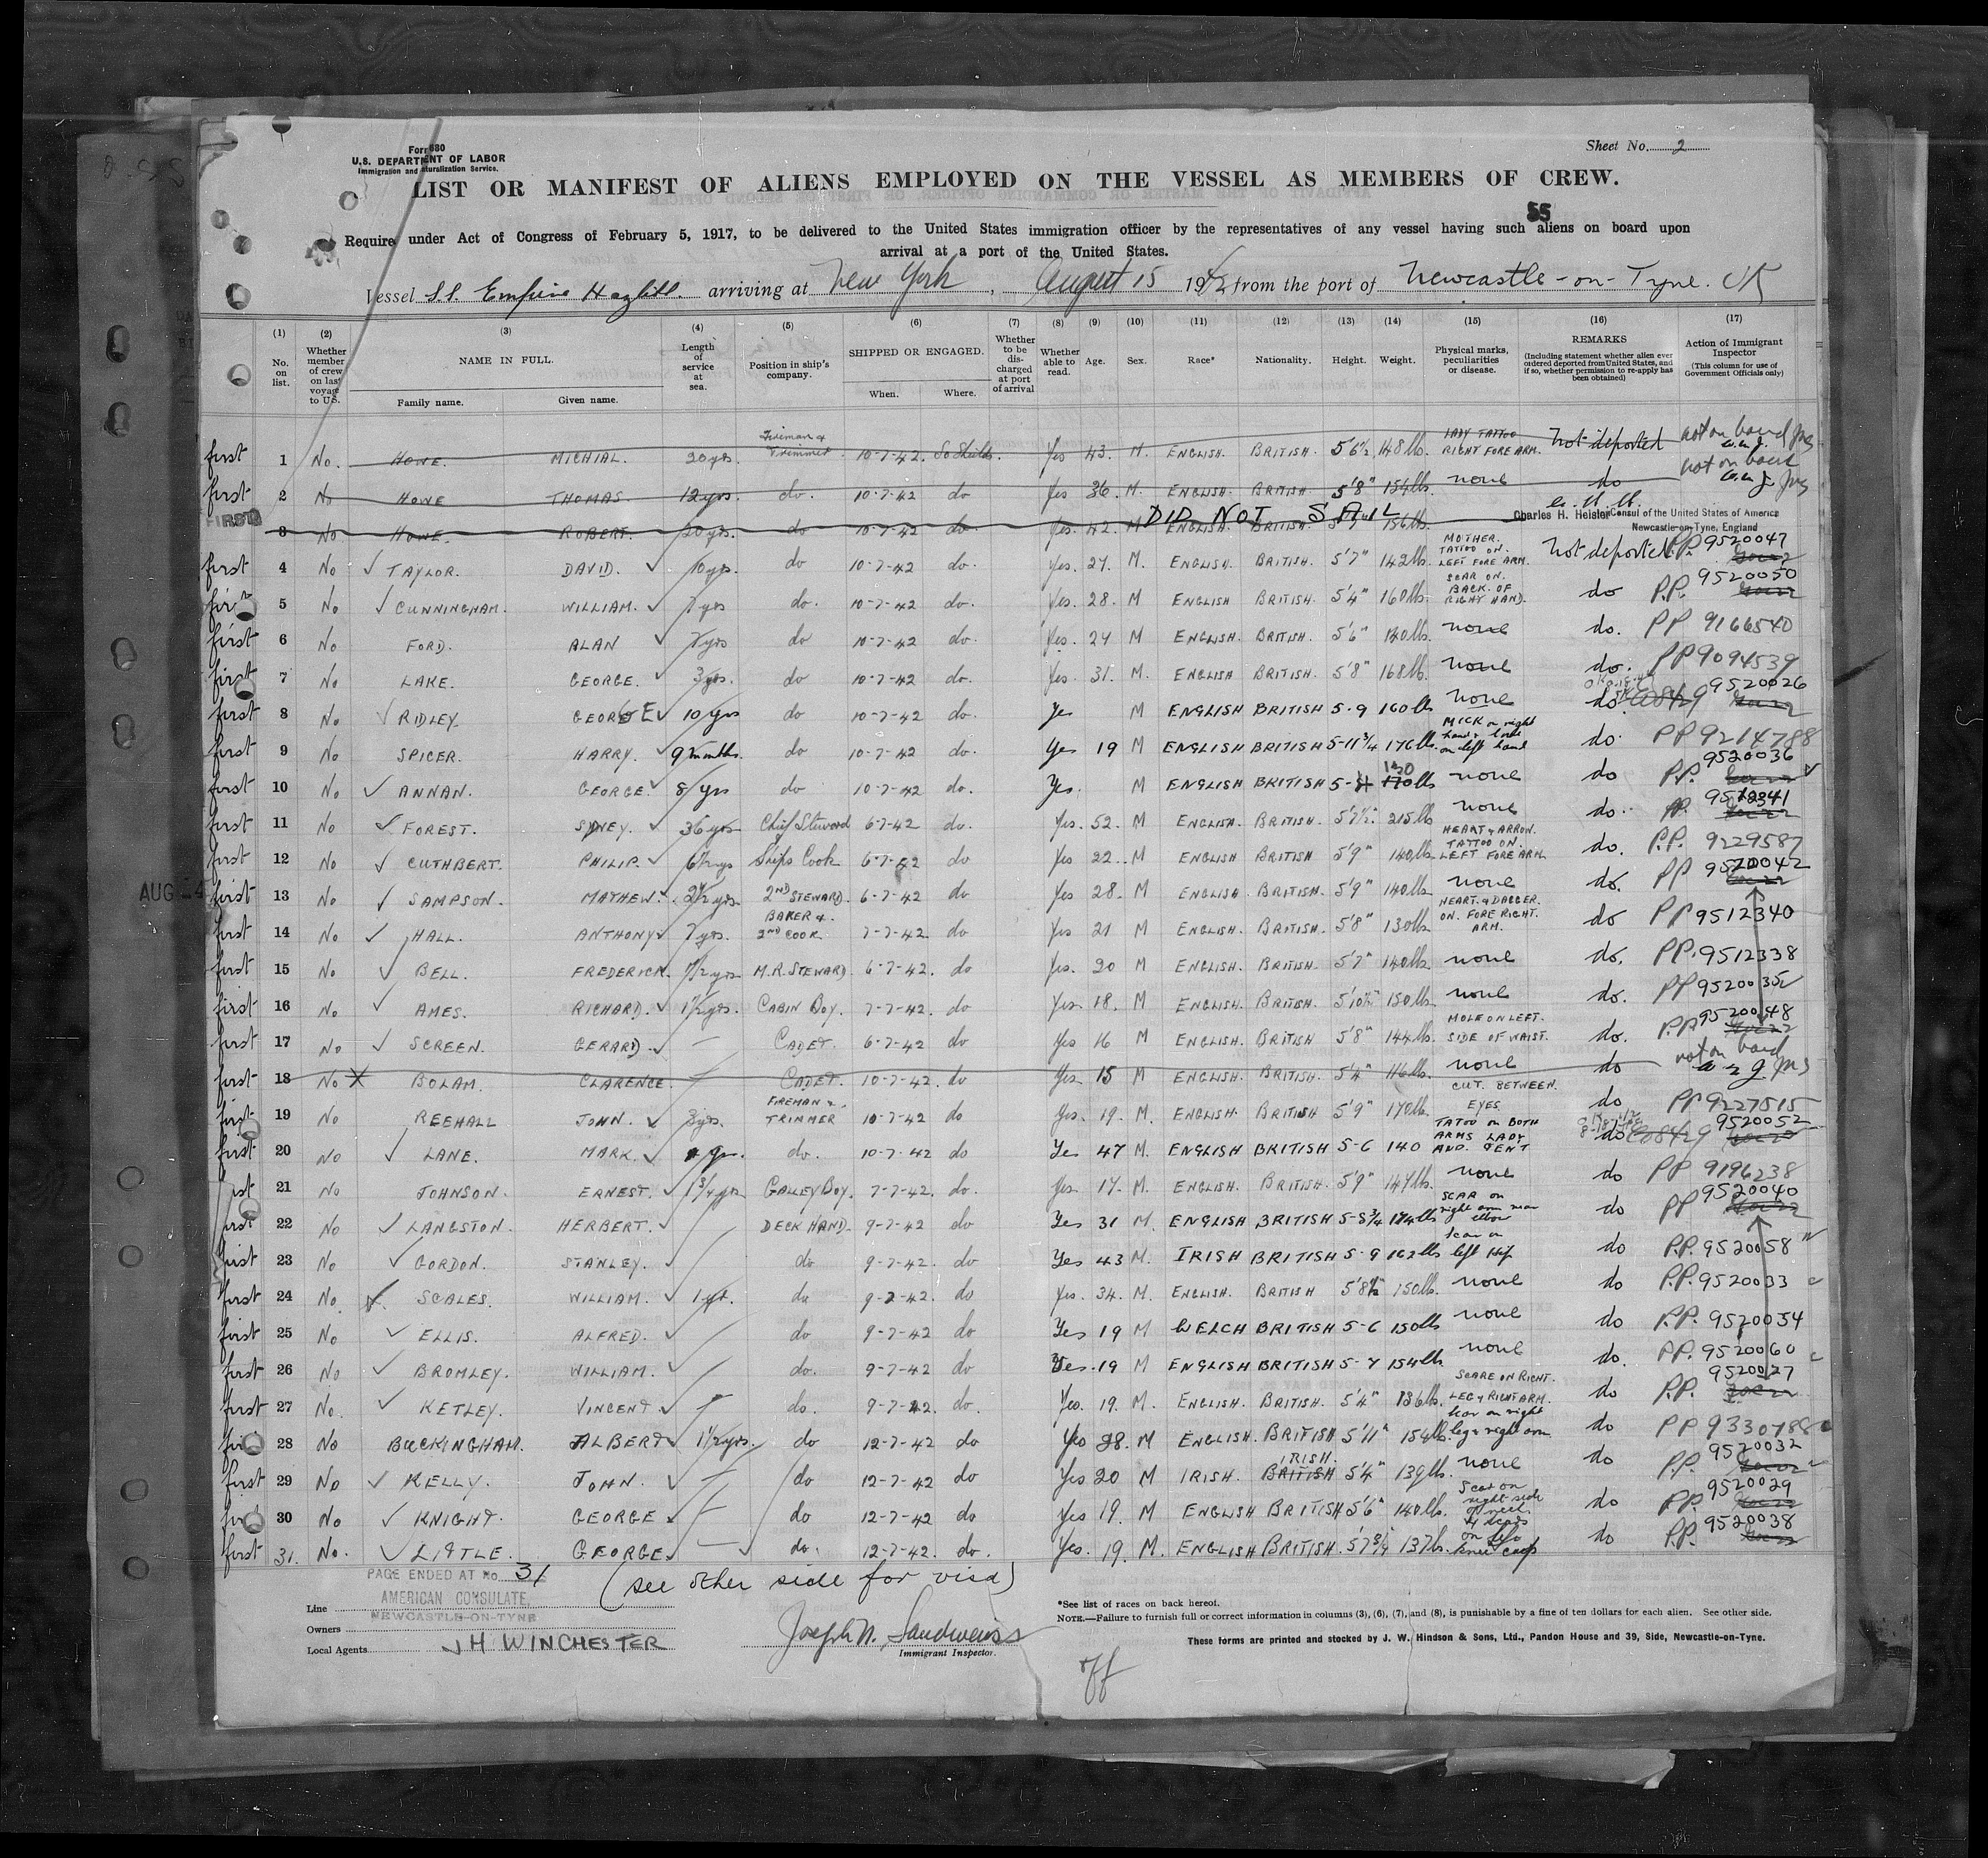 Sheet No. 2
U.S. DEPARTMENT OF LABOR
Immigration and Naturalization Service.
LIST OR MANIFEST OF ALIENS EMPLOYED ON THE VESSEL AS MEMBERS OF CREW.
55
Require under Act of Congress of February 5, 1917, to be delivered to the United States immigration officer by the representatives of any vessel having such aliens on board upon
arrival at a port of the United States.
Vessel S.S. Empire Hazlitt. arriving at New York, August 15 1942 from the port of Newcastle-on-Tyne. UK
(1) No. on list. (2) Whether member of crew on last voyage to U.S. (3) NAME IN FULL. Family name. Given name. (4) Length of service at sea. (5) Position in ship's company. (6) SHIPPED OR ENGAGED. When. Where. (7) Whether to be discharged at port of arrival (8) Whether able to read. (9) Age. (10) Sex. (11) Race* (12) Nationality. (13) Height. (14) Weight. (15) Physical marks, peculiarities or disease. (16) REMARKS (Including statement whether alien ever ordered deported from United States, and if so, whether permission to re-apply has been obtained) (17) Action of Immigrant Inspector (This column for use of Government Officials only)
first 1 No. HOWE. MICHIAL. 20 yrs. Fireman & Trimmer 10-7-42. So Shields. Yes 43. M. ENGLISH. BRITISH. 5'6½ 148 lb. LADY TATTOO RIGHT FORE ARM. Not deported not on board
first 2 No HOWE THOMAS. 12 yrs. do. 10-7-42 do Yes 36. M. ENGLISH. BRITISH 5'8" 154 lb. none do not on board
FIRST 3 No HOWE. ROBERT. 20 yrs. do 10-7-42 do Yes. 42. M ENGLISH. BRITISH 156 lb. DID NOT SAIL
Charles H. Heisler Consul of the United States of America
Newcastle-on-Tyne, England
first 4 No TAYLOR. DAVID. 10 yrs. do 10-7-42 do. Yes. 27. M. ENGLISH. BRITISH. 5'7" 142 lb. MOTHER. TATOO ON. LEFT FORE ARM. Not deported. P.P. 9520047
first 5 No CUNNINGHAM. WILLIAM. 7 yrs do. 10-7-42 do. Yes. 28. M ENGLISH BRITISH. 5'4" 160 lb. SCAR ON. BACK. OF RIGHT HAND. do P.P. 9520050
first 6 No FORD. ALAN 7 yrs do 10-7-42 do. Yes. 24 M ENGLISH. BRITISH. 5'6" 140 lb. none do. PP 9166540
first 7 No LAKE. GEORGE. 3 yrs. do 10-7-42 do. Yes. 31. M. ENGLISH. BRITISH. 5'8" 168 lb. none do. PP 9094539
first 8 No RIDLEY GEORGE 10 yrs do 10-7-42 do. Yes M ENGLISH BRITISH 5-9 160 lb none do. 9520026
first 9 No SPICER. HARRY. 9 months. do 10-7-42 do. Yes 19 M ENGLISH BRITISH 5-11¾ 176 lb. MICK on right hand & love on left hand do. PP 9214788
first 10 No ANNAN. GEORGE. 8 yrs do 10-7-42 do. Yes. M ENGLISH BRITISH 5-4 130 lb none do PP. 9520036
first 11 No FOREST. SIDNEY. 36 yrs Chief Steward 6-7-42 do. Yes. 52. M ENGLISH. BRITISH. 5'7½" 215 lb none do. PP.
first 12 No CUTHBERT. PHILIP. 6½ yrs Ships Cook 6-7-42 do Yes 22. M ENGLISH BRITISH 5'9" 140 lb. HEART & ARROW. TATTOO ON. LEFT FORE ARM. do. P.P. 9229587
first 13 No SAMPSON. MATHEW. 2½ yrs 2ND STEWARD. 6-7-42 do Yes 28. M ENGLISH. BRITISH. 5'9" 140 lb. none do. PP 9520042
first 14 No HALL. ANTHONY 7 yrs. BAKER & 2ND COOK 7-7-42 do Yes 21 M ENGLISH. BRITISH. 5'8" 130 lb. HEART. & DAGGER. ON. FORE RIGHT. ARM. do PP 9512340
first 15 No BELL. FREDERICK. 1½ yrs M.R. STEWARD 6-7-42. do Yes. 20 M ENGLISH. BRITISH. 5'7" 140 lb. none do. PP. 9512338
first 16 No AMES. RICHARD. 1½ yrs. CABIN BOY. 7-7-42. do Yes. 18. M ENGLISH. BRITISH. 5'10½" 150 lb. none do. PP 9520035
first 17 No SCREEN. GERARD. — CADET. 6-7-42 do Yes 16 M ENGLISH. BRITISH 5'8" 144 lb. MOLE ON LEFT. SIDE OF WAIST. do. P.P. 9520048
first 18 No X BOLAM. CLARENCE. CADET. 10-7-42. do Yes 15 M ENGLISH. BRITISH. 5'4" 116 lb. none do not on board
first 19 No REEHALL JOHN. 3 yrs. FIREMAN & TRIMMER 10-7-42 do Yes. 19. M ENGLISH. BRITISH 5'9" 170 lb. CUT. BETWEEN. EYES. do PP 9227515
first 20 No LANE. MARK. do. 10-7-42 do Yes 47 M ENGLISH BRITISH 5-6 140 TATOO ON BOTH ARMS LADY AND. GENT do 9520052
first 21 No JOHNSON. ERNEST. 1¾ yrs GALLEY BOY. 7-7-42. do. Yes 17. M. ENGLISH. BRITISH. 5'9" 147 lb. none do PP 9196238
first 22 No LANGSTON. HERBERT. DECK HAND. 9-7-42 do Yes 31 M. ENGLISH BRITISH 5-8¾ 174 lbs SCAR on right arm near elbow do PP 9520040
first 23 No GORDON. STANLEY. do 9-7-42. do Yes 43 M. IRISH BRITISH 5-9 162 lbs scar on left hip do P.P. 9520058
first 24 No SCALES. WILLIAM. 1 yr. do 9-7-42. do Yes. 34. M. ENGLISH. BRITISH 5'8½" 150 lb. none do P.P. 9520033
first 25 No ELLIS. ALFRED. do 9-7-42 do Yes 19 M WELCH BRITISH 5-6 150 lb none do P.P. 9520054
first 26 No BROMLEY. WILLIAM. do. 9-7-42 do Yes. 19 M ENGLISH BRITISH 5-7 154 lb none do. PP. 9520060
first 27 No. KETLEY. VINCENT do. 9-7-42. do. Yes. 19. M ENGLISH. BRITISH. 5'4" 136 lb. SCARE ON RIGHT. LEG & RIGHT ARM. do P.P. 9520027
first 28 No BUCKINGHAM. ALBERT 1½ yrs. do 12-7-42 do Yes 28. M ENGLISH. BRITISH 5'11" 154 lb. scar on right leg & right arm do PP 9330788
first 29 No KELLY. JOHN. do 12-7-42 do Yes 20 M IRISH. IRISH. BRITISH 5'4" 139 lb. none do P.P. 9520032
first 30 No KNIGHT. GEORGE do 12-7-42 do Yes 19. M ENGLISH BRITISH 5'6" 140 lb. Scar on right side of neck do P.P. 9520029
first 31. No. LITTLE. GEORGE. — do. 12-7-42. do. Yes. 19. M. ENGLISH BRITISH. 5'7¾" 137 lb. 4 scars on knee cap do P.P. 9520038
PAGE ENDED AT No. 31
(see other side for visa)
AMERICAN CONSULATE,
NEWCASTLE-ON-TYNE
Line
Owners
Local Agents J H WINCHESTER
Joseph N. Sandweiss
Immigrant Inspector.
*See list of races on back hereof.
NOTE.—Failure to furnish full or correct information in columns (3), (6), (7), and (8), is punishable by a fine of ten dollars for each alien. See other side.
These forms are printed and stocked by J. W. Hindson & Sons, Ltd., Pandon House and 39, Side, Newcastle-on-Tyne.